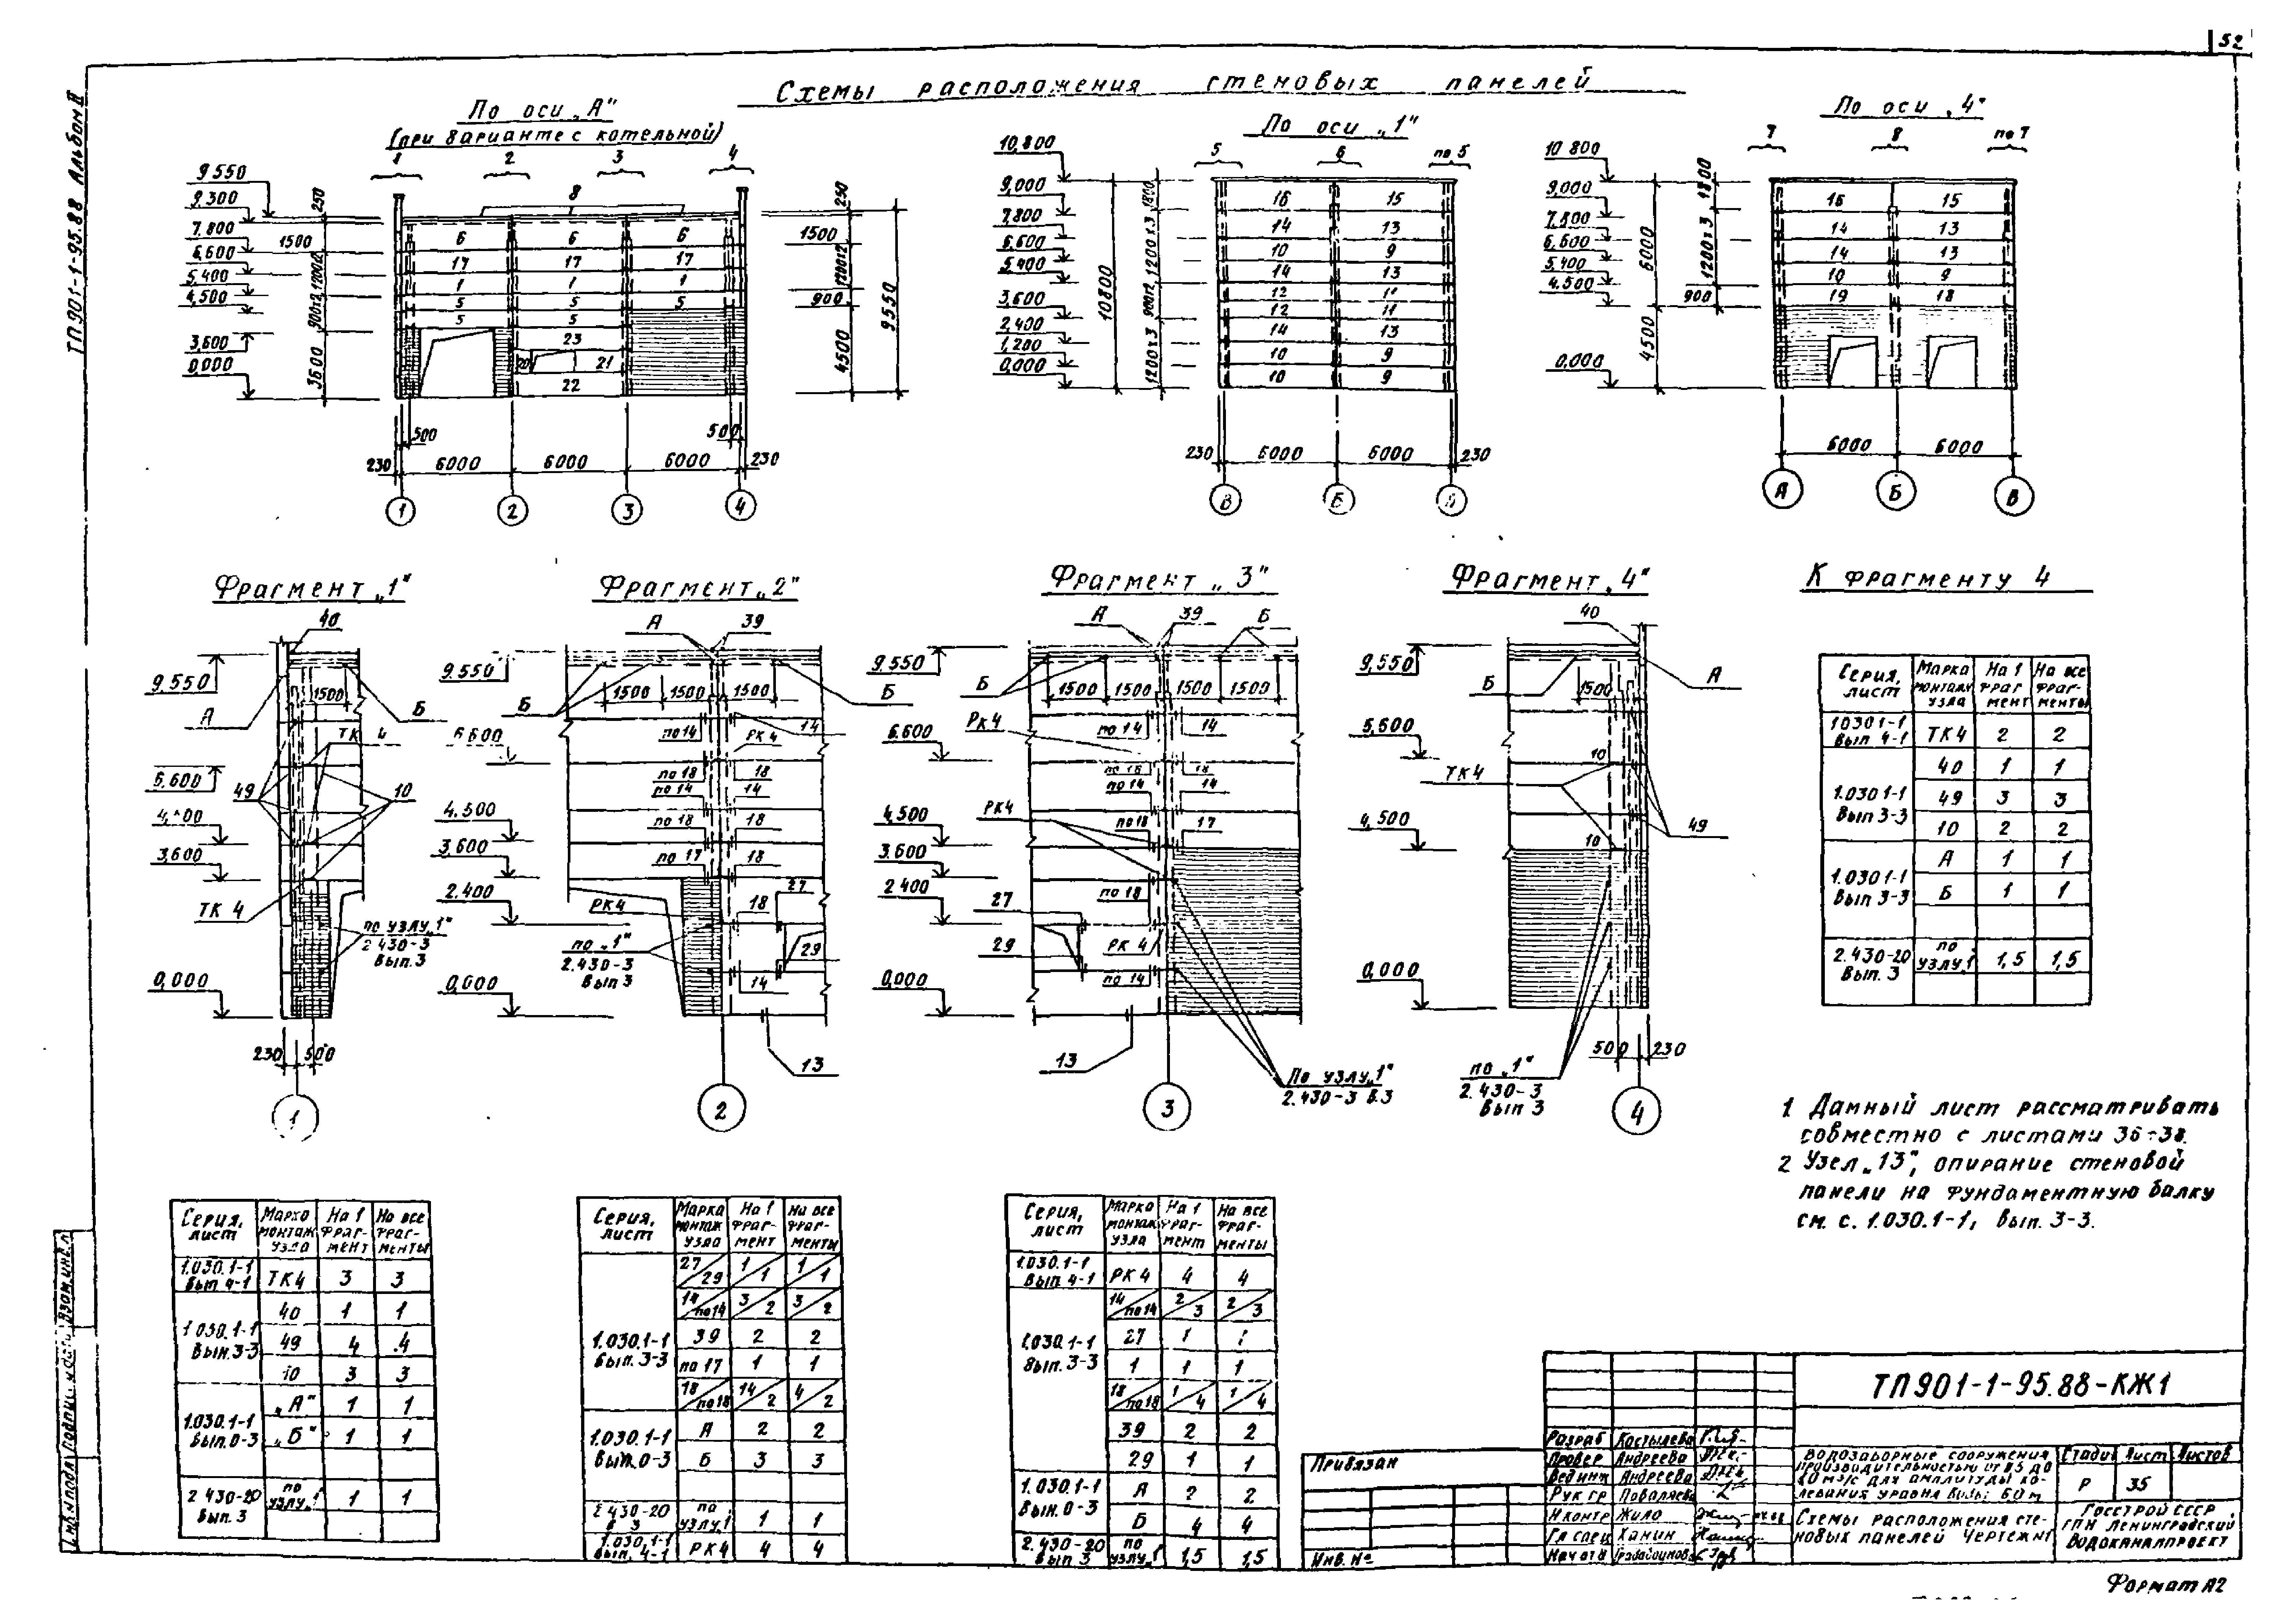 52
ТП 901-1-95.88 Альбом II
Схемы расположения стеновых панелей
По оси „А"
(при варианте с котельной)
1 2 3 4
9.550
9.300
7.800
6.600
5.400
4.500
3.600
0.000
250
1500
3600
8
6 6 6
17 17 17
1 1 1
5 5 5
5 5
23
20 21
22
250
1500
900
4500
9550
500 500
230 6000 6000 6000 230
1 2 3 4
По оси „1"
5 6 по 5
10,800
9,000
7,800
6,600
5,400
3,600
2,400
1,200
0,000
10800
1800
1200х3
1200х3
16 15
14 13
10 9
14 13
12 11
12 11
14 13
10 9
10 9
230 6000 6000 230
В Б А
По оси „4"
7 8 по 7
10 800
9,000
7,800
6,600
5,400
4.500
0,000
6000
4500
1800
1200х3
900
16 15
14 13
14 13
10 9
19 18
6000 6000
А Б В
Фрагмент „1"
40
9.550
1500
А
Б
ТК 4
49
10
3,600
ТК 4
по узлу„1"
2.430-3
Вып.3
0,000
230 500
1
Фрагмент„2"
А 39
9.550
Б 1500 1500 1500 Б
по14 14
РК 4
6.600
по 18 18
по 14 14
4.500
по 18 18
3.600
по 17 18
2.400
РК4 18 27
по „1"
2.430-3
Вып 3
29
14
0,000
13
2
Фрагмент „3"
А 39 Б
9.550
Б 1500 1500 1500 1500
РК4
по 14 14
6.600
по 18 18
по 14 14
РК4
4,500
по18 17
3.600
по 18
2 400
27
29
РК 4
по 14
0,000
13
По узлу„1"
2.430-3 В.3
3
Фрагмент „4"
40
9,550
Б 1500 А
10
ТК4
49
4,500
10
0,000
500 230
по „1"
2.430-3
Вып 3
4
К фрагменту 4
Серия, лист Марка монтаж узла На 1 фрагмент На все фрагменты
1.030.1-1 Вып 4-1 ТК4 2 2
40 1 1
1.030.1-1 Вып 3-3 49 3 3
10 2 2
1.030.1-1 Вып 3-3 А 1 1
Б 1 1
2.430-20 Вып. 3 по узлу„1 1,5 1,5
1 Данный лист рассматривать
совместно с листами 36÷38.
2 Узел „13", опирание стеновой
панели на фундаментную балку
см. с. 1.030.1-1, Вып. 3-3.
Серия, лист Марка монтаж узла На 1 фрагмент На все фрагменты
1.030.1-1 Вып. 4-1 ТК4 3 3
40 1 1
1.030.1-1 Вып.3-3 49 4 4
10 3 3
1.030.1-1 Вып.0-3 „А" 1 1
„Б" 1 1
2 430-20 Вып. 3 по узлу„1 1 1
Серия, лист Марка монтаж узла На 1 фрагмент На все фрагменты
27/29 1/1 1/1
14/по14 3/2 3/2
1.030.1-1 Вып. 3-3 39 2 2
по 17 1 1
18/по18 14/2 4/2
1.030.1-1 Вып.0-3 А 2 2
Б 3 3
2 430-20 В 3 по узлу„1 1 1
1.030.1-1 Вып. 4-1 РК4 4 4
Серия, лист Марка монтаж узла На 1 фрагмент На все фрагменты
1.030.1-1 Вып. 4-1 РК4 4 4
14/по14 2/3 2/3
1.030.1-1 Вып. 3-3 27 1
1 1 1
18/по18 1/4 1/4
39 2 2
29 1 1
1.030.1-1 Вып. 0-3 А 2 2
Б 4 4
2.430-20 Вып 3 по узлу„1 1,5 1,5
Привязан
Инв. №
ТП901-1-95.88-КЖ1
Разраб Костылева
Провер Андреева
Вед инж Андреева
Рук гр Поваляева
Н контр Жило
Гл спец Ханин
Нач отд
Водозаборные сооружения
производительностью от 0,5 до
для амплитуды ко-
лебания уровня воды 6.0 м
Стадия Лист Листов
Р 35
Схемы расположения сте-
новых панелей Чертеж №1
Госстрой СССР
ГПИ Ленинградский
Водоканалпроект
Формат А2